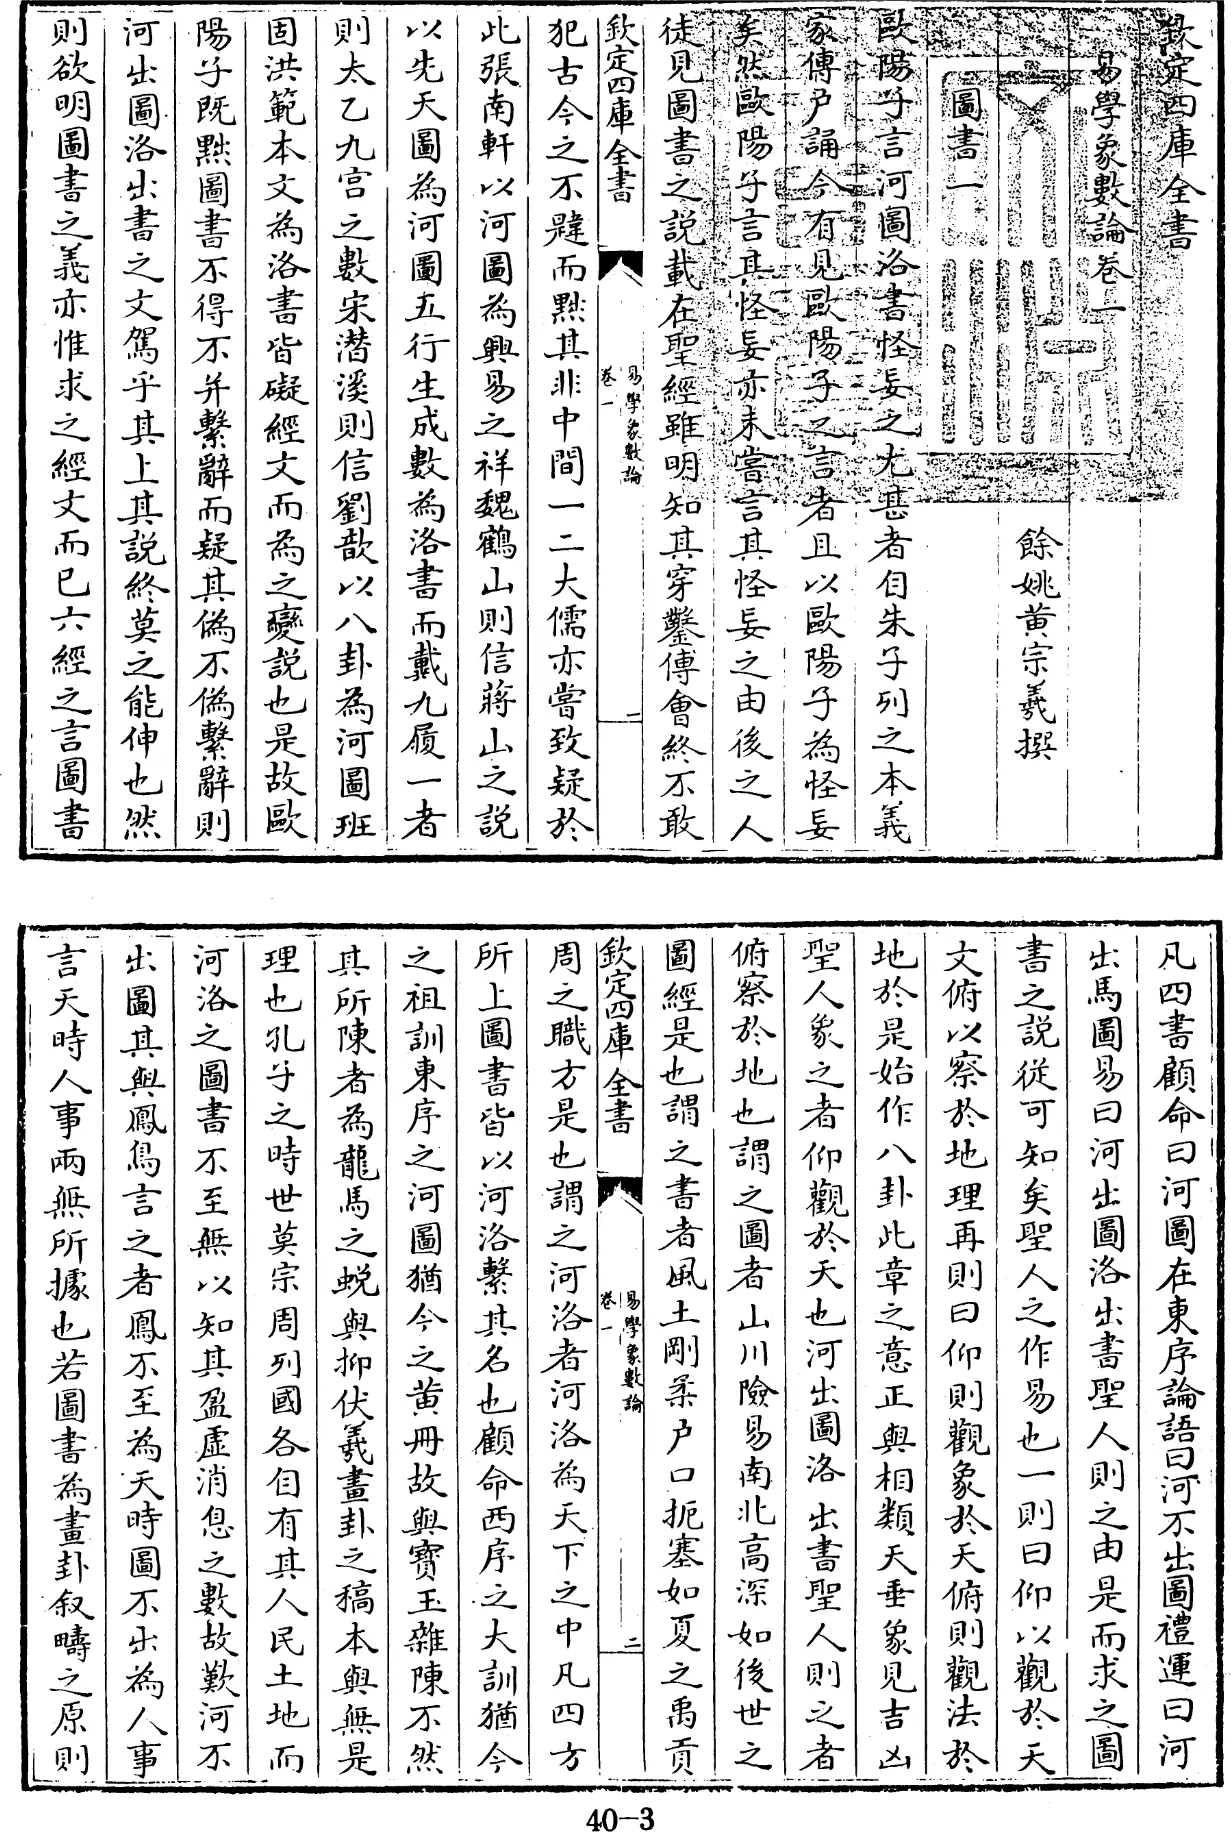 欽定四庫全書
易學象數論卷一
餘姚黄宗羲撰
圖書一
歐陽子言河圖洛書怪妄之尤甚者自朱子列之本義
家傳户誦今有見歐陽子之言者且以歐陽子為怪妄
矣然歐陽子言其怪妄亦未嘗言其怪妄之由後之人
徒見圖書之説載在聖經雖明知其穿鑿傅會終不敢
欽定四庫全書
易學象數論
卷一
一
犯古今之不韙而黜其非中間一二大儒亦嘗致疑於
此張南軒以河圖為興易之祥魏鶴山則信蔣山之説
以先天圖為河圖五行生成數為洛書而戴九履一者
則太乙九宫之數宋潛溪則信劉歆以八卦為河圖班
固洪範本文為洛書皆礙經文而為之變説也是故歐
陽子既黜圖書不得不并繫辭而疑其偽不偽繫辭則
河出圖洛出書之文駕乎其上其説終莫之能伸也然
則欲明圖書之義亦惟求之經文而已六經之言圖書
凡四書顧命曰河圖在東序論語曰河不出圖禮運曰河
出馬圖易曰河出圖洛出書聖人則之由是而求之圖
書之説從可知矣聖人之作易也一則曰仰以觀於天
文俯以察於地理再則曰仰則觀象於天俯則觀法於
地於是始作八卦此章之意正與相類天垂象見吉凶
聖人象之者仰觀於天也河出圖洛出書聖人則之者
俯察於地也謂之圖者山川險易南北高深如後世之
圖經是也謂之書者風土剛柔户口扼塞如夏之禹貢
欽定四庫全書
易學象數論
卷一
二
周之職方是也謂之河洛者河洛為天下之中凡四方
所上圖書皆以河洛繫其名也顧命西序之大訓猶今
之祖訓東序之河圖猶今之黄冊故與寶玉雜陳不然
其所陳者為龍馬之蜕與抑伏羲畫卦之稿本與無是
理也孔子之時世莫宗周列國各自有其人民土地而
河洛之圖書不至無以知其盈虚消息之數故歎河不
出圖其與鳳鳥言之者鳳不至為天時圖不出為人事
言天時人事兩無所據也若圖書為畫卦叙疇之原則
40-3